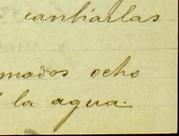 cambiarlas
mados ocho
la agua.